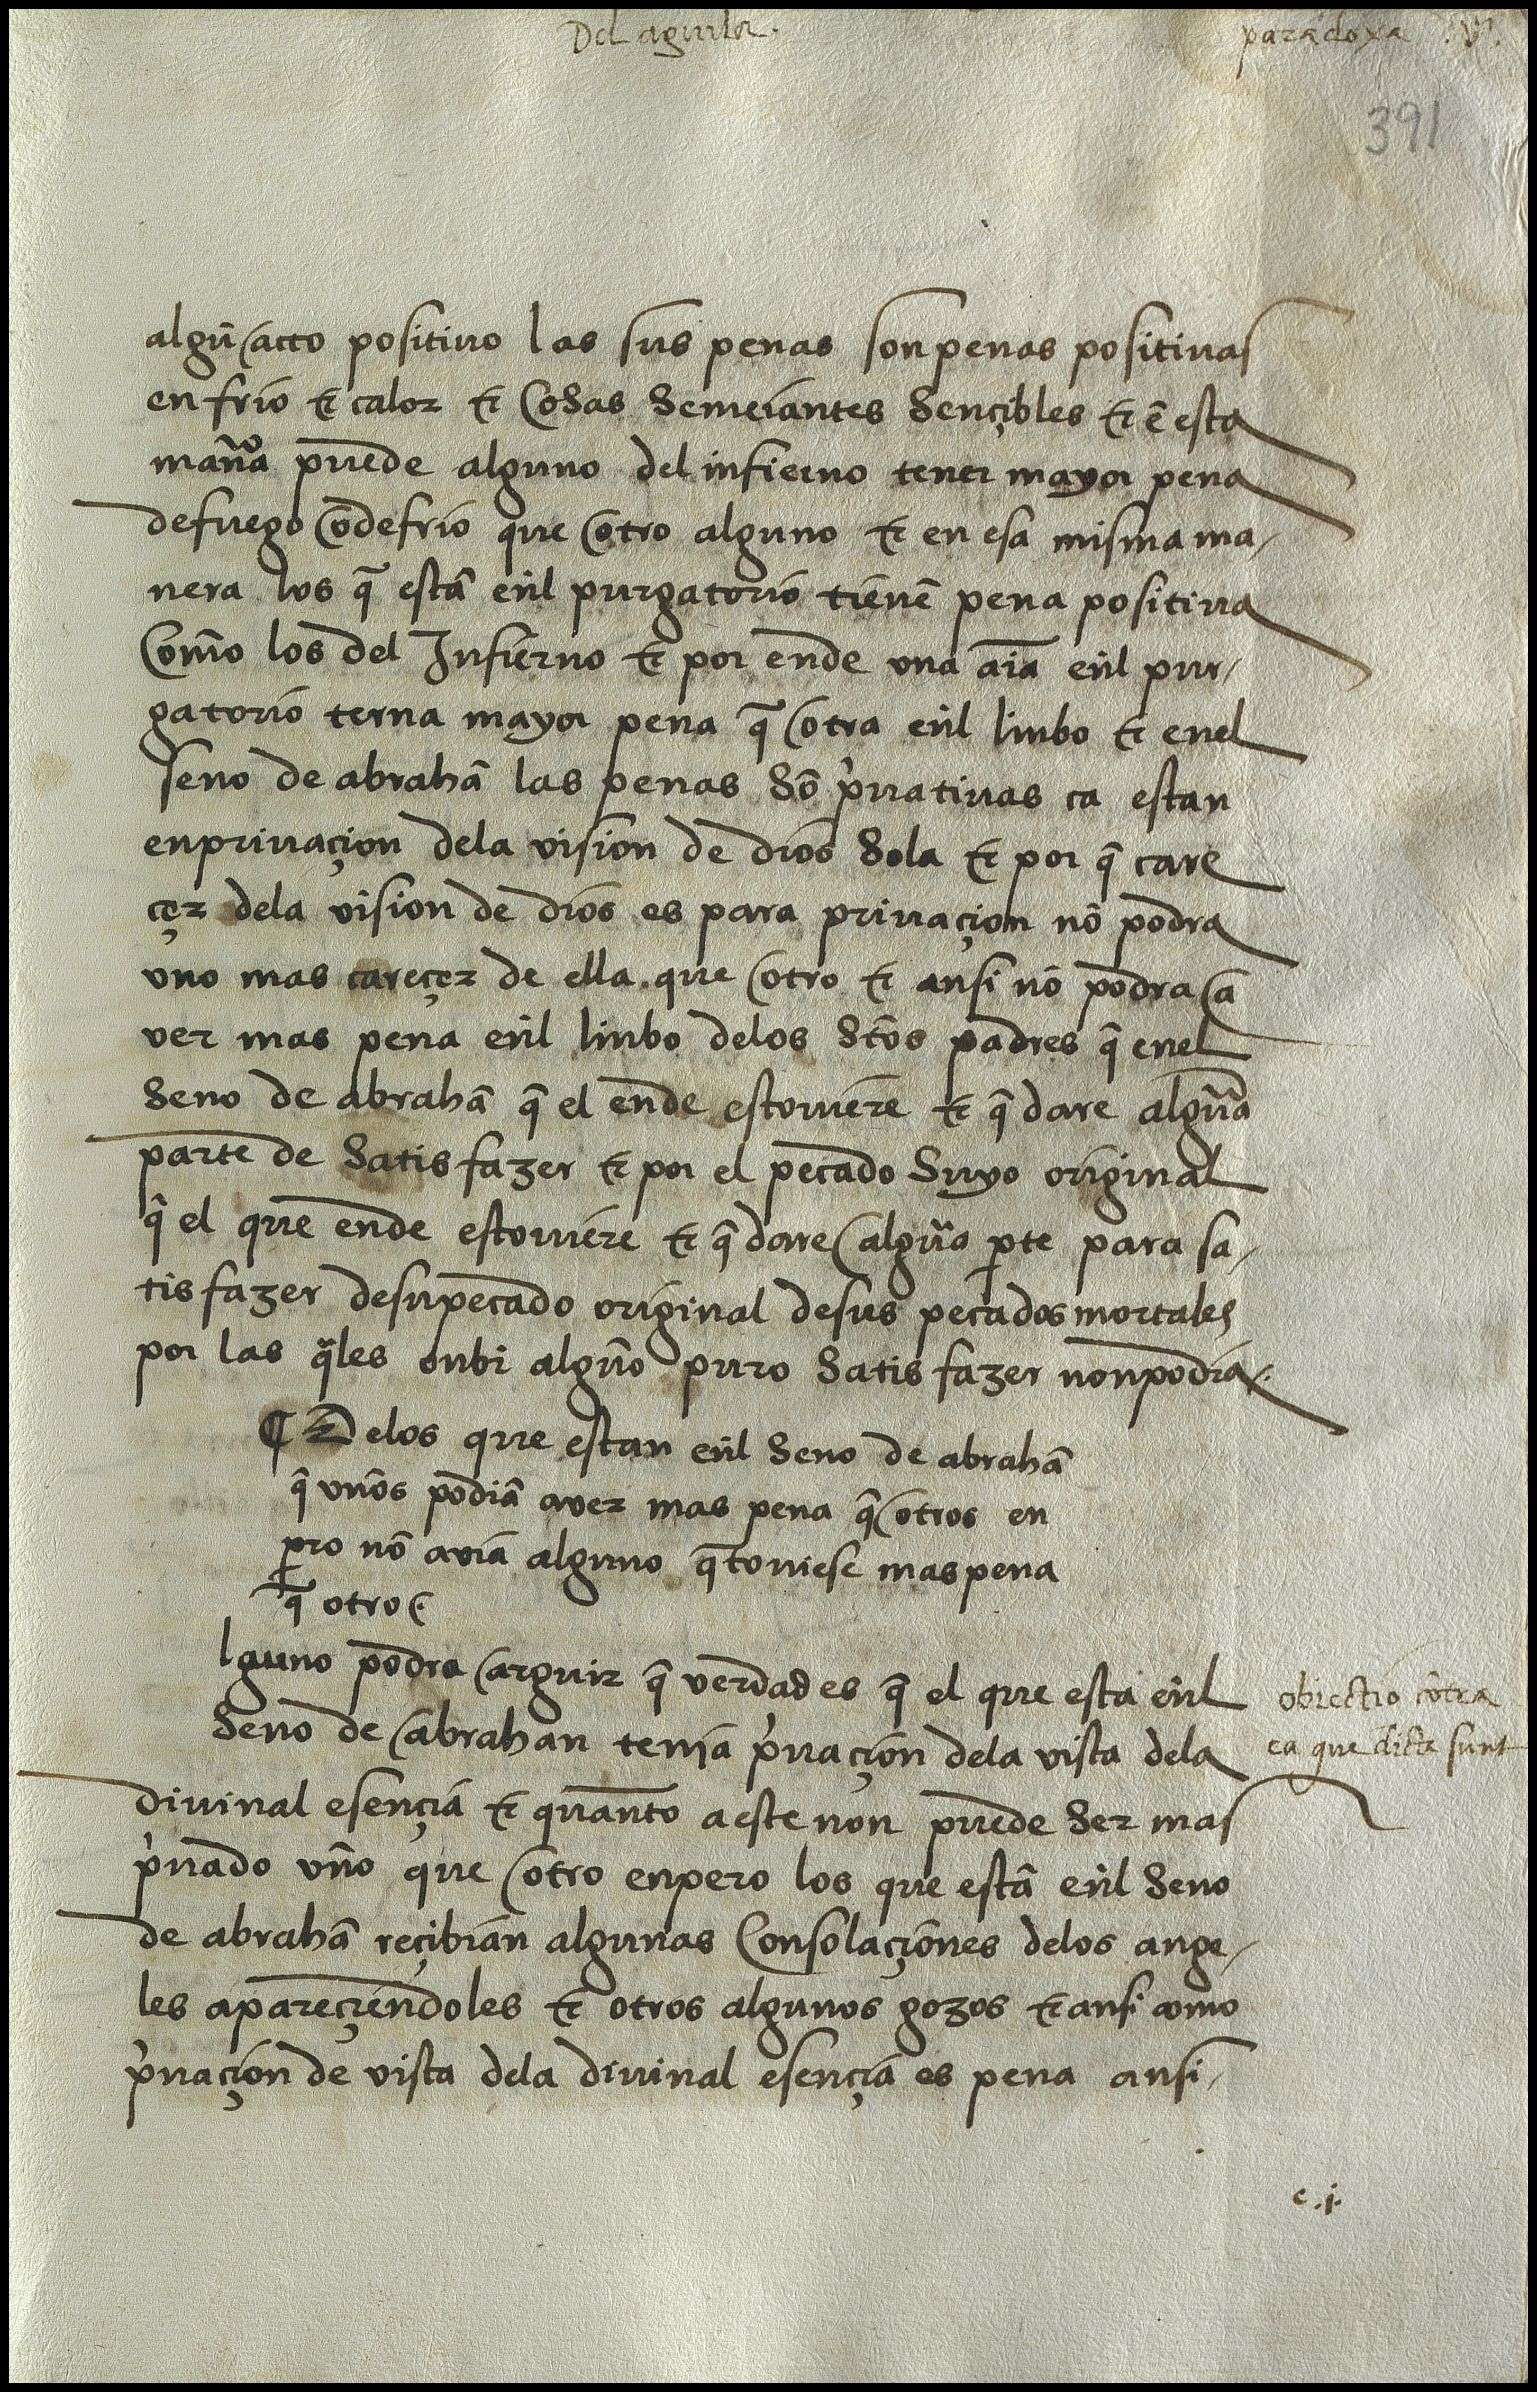 Del aguila.
paradoxa .v.
391
algũ acto positiuo las sus penas son penas positiuas
en frio & calor & cosas semeiantes sençibles & ẽ esta
mañã puede alguno del infierno tener mayor pena
de fuego o de frio que otro alguno & en esa misma ma-
nera los q̃ estã eñl purgatorio tienẽ pena positiua
com̃o los del Infierno & por ende vna aĩa eñl pur-
gatorio terna mayor pena q̃ otra eñl linbo & enel
seno de abrahã las penas sõ p'uatiuas ca estan
en priuaçion dela vision de dios sola & por q̃ care
çer dela vision de dios es para priuaçion nõ podra
vno mas careçer de ella que otro & ansi nõ podra a
ver mas pena eñl linbo delos stõs padres q̃ enel
seno de abrahã q̃ el ende estouiere & q̃dare algũa
parte de satisfazer & por el pecado suyo original
q̃ el que ende estouiere & q̃dare algũa pte para sa-
tisfazer de su pecado original de sus pecados mortales
por las q̃les onbr alguño puro satisfazer non podria.
¶ Delos que estan eñl seno de abrahã
q̃ vños podiã aver mas pena q̃ otros en
pro nõ avia alguno q̃ touiese mas pena
q̃ otro.
lguno podra arguir q̃ verdad es q̃ el que esta eñl
seno de abrahan tenia p'uaçion dela vista dela
diuinal esençia & quanto a este non puede ser mas
p'uado vño que otro enpero los que estã eñl seno
de abrahã reçibian algunas consolaçiones delos ange-
les apareçiendoles & otros algunos gozos & ansi como
p'uaçion de vista dela diuinal esençia es pena ansi-
obiectio cõtra
ea que dicta sunt
c.j.